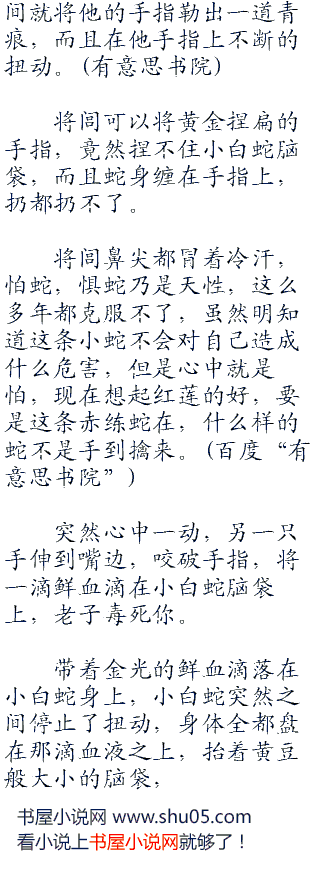 间就将他的手指勒出一道青
痕，而且在他手指上不断的
扭动。(有意思书院)
将闾可以将黄金捏扁的
手指，竟然捏不住小白蛇脑
袋，而且蛇身缠在手指上，
扔都扔不了。
将闾鼻尖都冒着冷汗，
怕蛇，惧蛇乃是天性，这么
多年都克服不了，虽然明知
道这条小蛇不会对自己造成
什么危害，但是心中就是
怕，现在想起红莲的好，要
是这条赤练蛇在，什么样的
蛇不是手到擒来。(百度“有
意思书院”)
突然心中一动，另一只
手伸到嘴边，咬破手指，将
一滴鲜血滴在小白蛇脑袋
上，老子毒死你。
带着金光的鲜血滴落在
小白蛇身上，小白蛇突然之
间停止了扭动，身体全都盘
在那滴血液之上，抬着黄豆
般大小的脑袋，
书屋小说网 www.shu05.com
看小说上书屋小说网就够了！